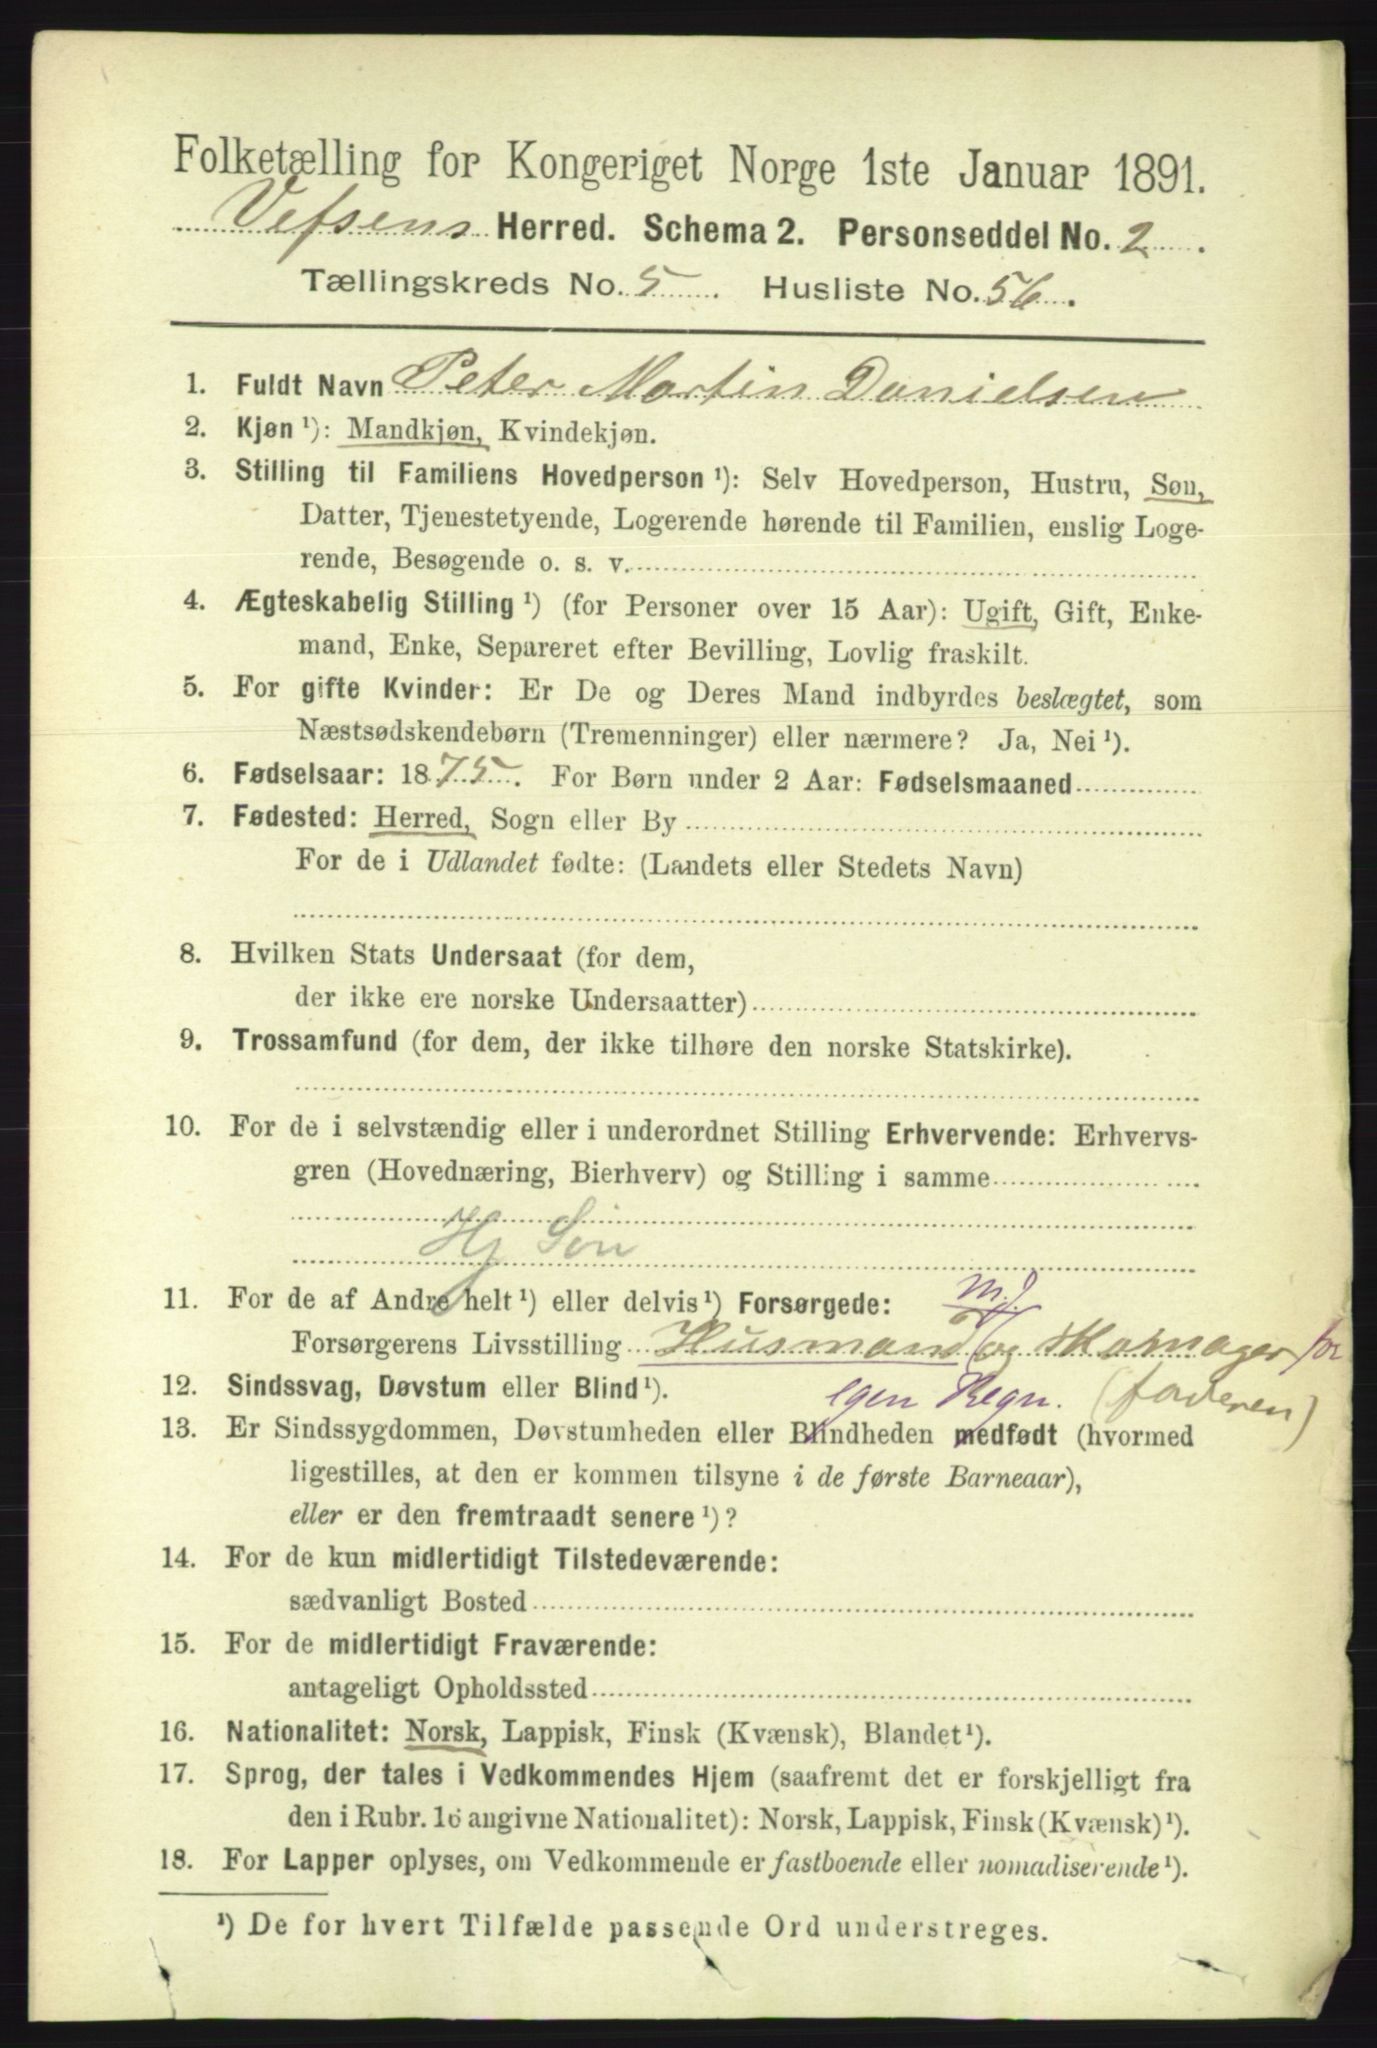 Folketælling for Kongeriget Norge 1ste Januar 1891.
Vefsens Herred. Schema 2. Personseddel No. 2.
Tællingskreds No. 5. Husliste No. 56.
1. Fuldt Navn Peter Martin Danielsen
2. Kjøn ¹): Mandkjøn, Kvindekjøn.
3. Stilling til Familiens Hovedperson ¹): Selv Hovedperson, Hustru, Søn,
Datter, Tjenestetyende, Logerende hørende til Familien, enslig Loge-
rende, Besøgende o. s. v.
4. Ægteskabelig Stilling ¹) (for Personer over 15 Aar): Ugift, Gift, Enke-
mand, Enke, Separeret efter Bevilling, Lovlig fraskilt.
5. For gifte Kvinder: Er De og Deres Mand indbyrdes beslægtet, som
Næstsødskendebørn (Tremenninger) eller nærmere? Ja, Nei ¹).
6. Fødselsaar: 1875. For Børn under 2 Aar: Fødselsmaaned
7. Fødested: Herred, Sogn eller By
For de i Udlandet fødte: (Landets eller Stedets Navn)
8. Hvilken Stats Undersaat (for dem,
der ikke ere norske Undersaatter)
9. Trossamfund (for dem, der ikke tilhøre den norske Statskirke).
10. For de i selvstændig eller i underordnet Stilling Erhvervende: Erhvervs-
gren (Hovednæring, Bierhverv) og Stilling i samme
Hj Søn
11. For de af Andre helt ¹) eller delvis ¹) Forsørgede: m. J.
Forsørgerens Livsstilling Husmand og Skomager for
12. Sindssvag, Døvstum eller Blind ¹). egen Regn. (faderen)
13. Er Sindssygdommen, Døvstumheden eller Blindheden medfødt (hvormed
ligestilles, at den er kommen tilsyne i de første Barneaar),
eller er den fremtraadt senere ¹)?
14. For de kun midlertidigt Tilstedeværende:
sædvanligt Bosted
15. For de midlertidigt Fraværende:
antageligt Opholdssted
16. Nationalitet: Norsk, Lappisk, Finsk (Kvænsk), Blandet ¹).
17. Sprog, der tales i Vedkommendes Hjem (saafremt det er forskjelligt fra
den i Rubr. 16 angivne Nationalitet): Norsk, Lappisk, Finsk (Kvænsk) ¹).
18. For Lapper oplyses, om Vedkommende er fastboende eller nomadiserende ¹).
¹) De for hvert Tilfælde passende Ord understreges.